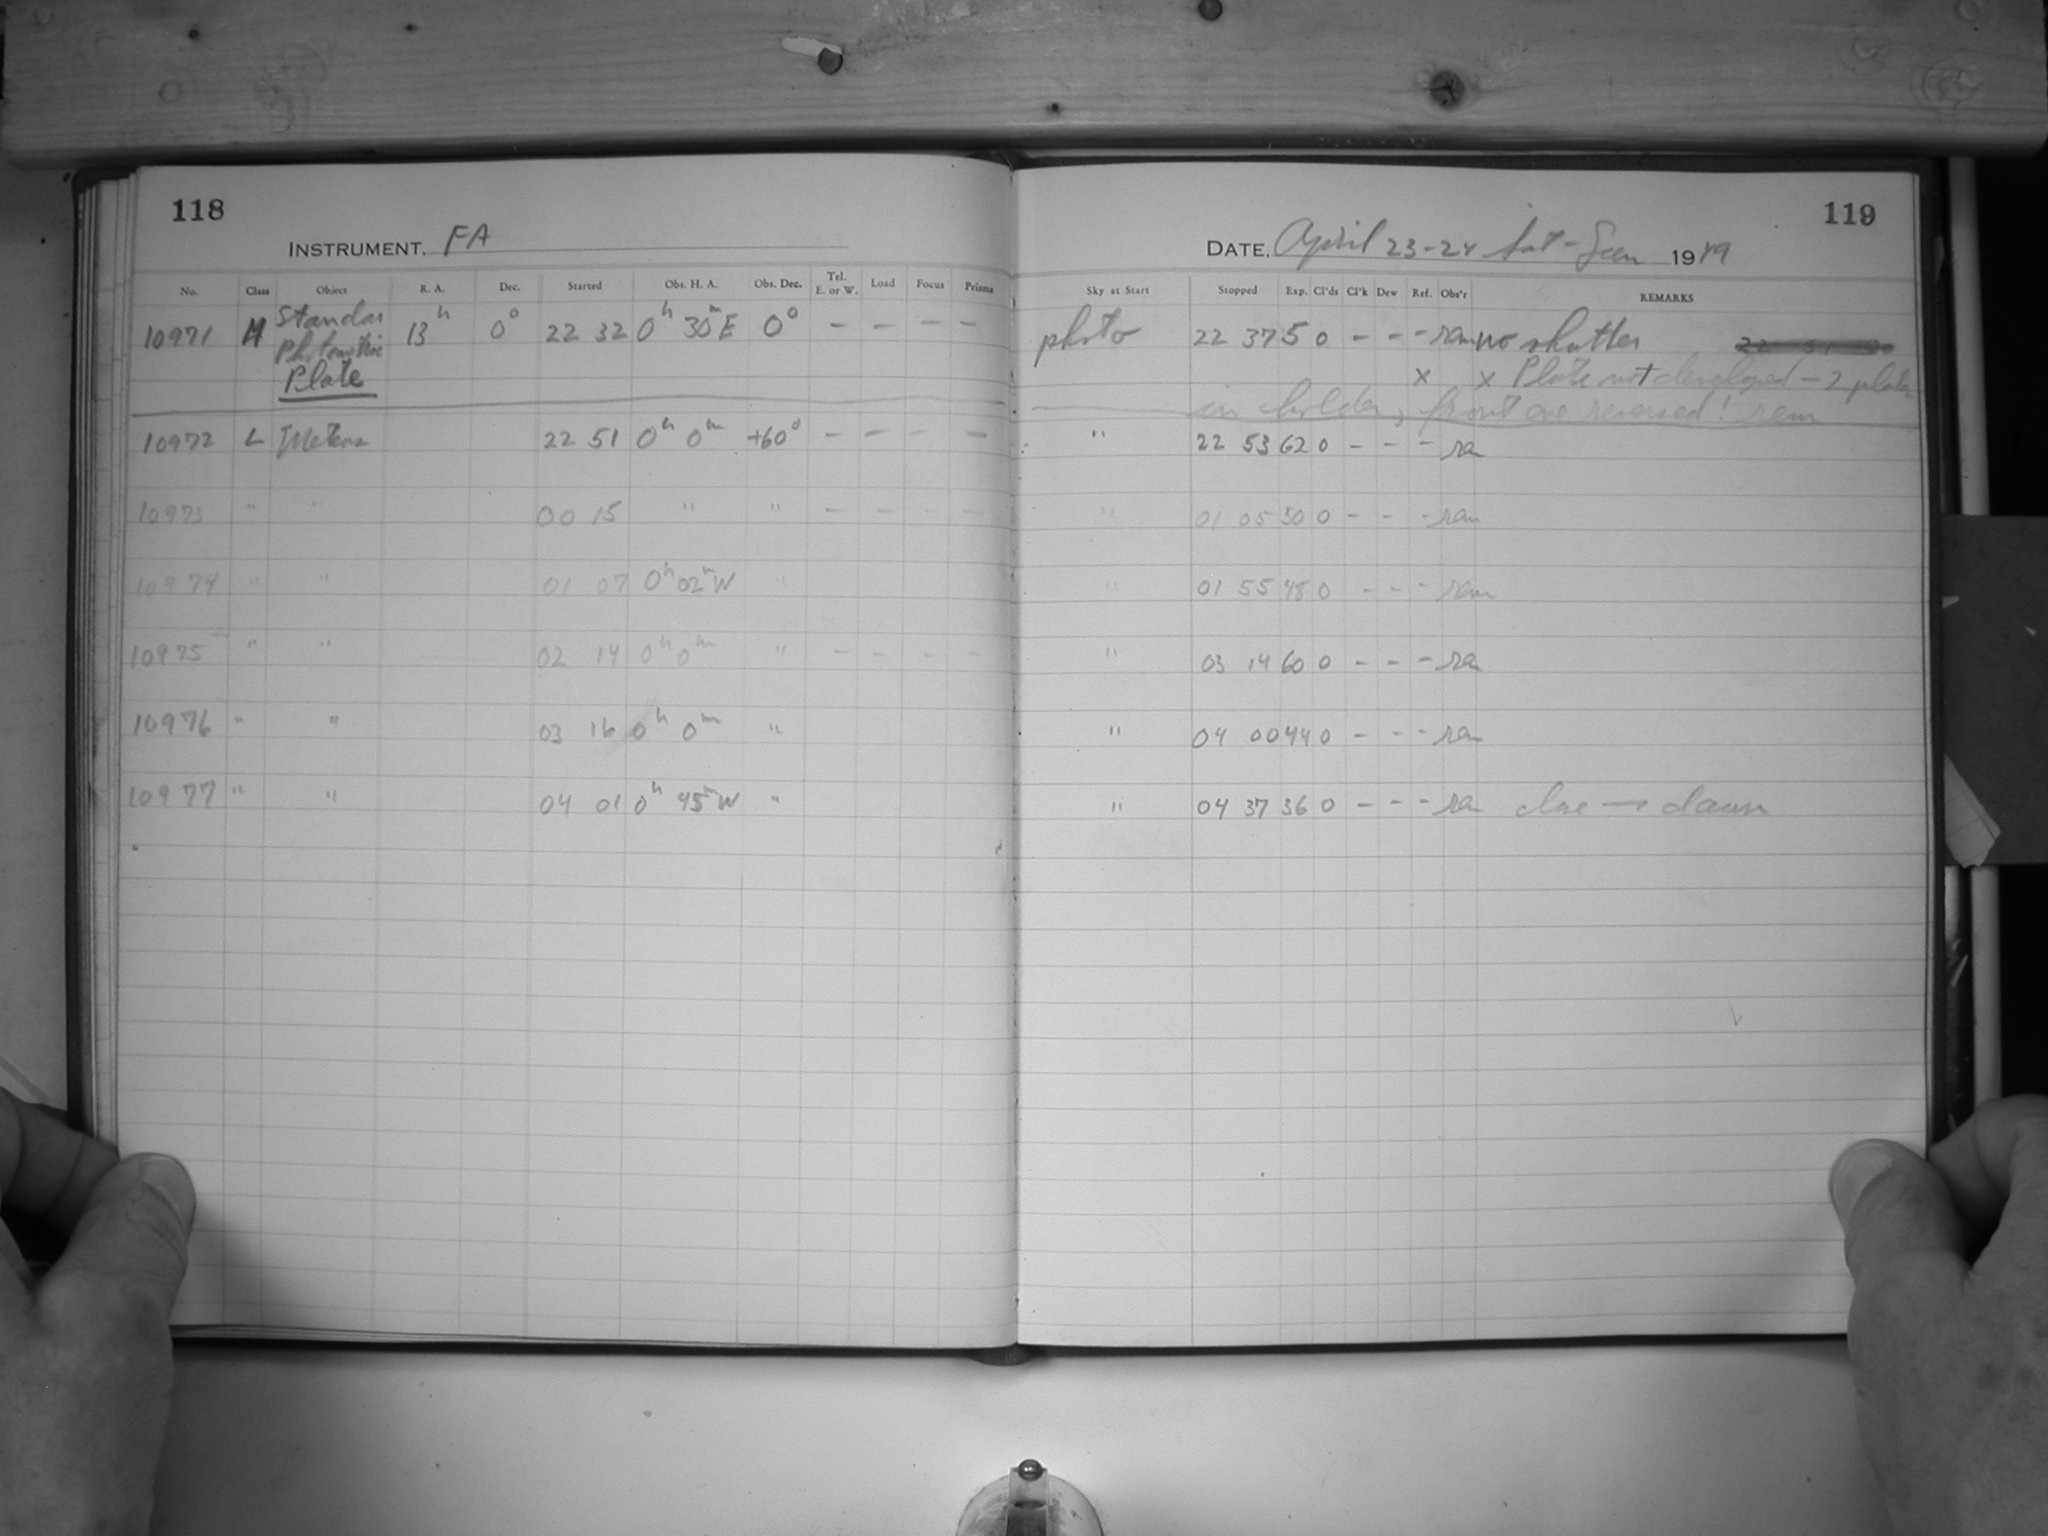 118
INSTRUMENT, FA
No. Class Object R. A. Dec. Started Obs. H. A. Obs. Dec. Tel. E. or W. Load Focus Prisms
10971 H Standar 13h 0° 22 32 0h 30m E 0° - - - -
Photometric
Plate
10972 L Meteors 22 51 0h 0m +60° - - - -
10973 " " 00 15 " " - - - -
10974 " " 01 07 0h 02m W "
10975 " " 02 14 0h 0m " - - - -
10976 " " 03 16 0h 0m "
10977 " " 04 01 0h 45m W "
119
DATE, April 23-24 Sat - Sun 1949
Sky at Start Stopped Exp. Cl'ds Cl'k Dew Ref. Obs'r REMARKS
photo 22 37 5 0 - - - ram no shutter
x x Plate not developed - 2 plates
in holder, front one reversed! ram
" 22 53 62 0 - - - ra
" 01 05 50 0 - - - ram
" 01 55 48 0 - - - ram
" 03 14 60 0 - - - ra
" 04 00 44 0 - - - ra
" 04 37 36 0 - - - ra close → dawn